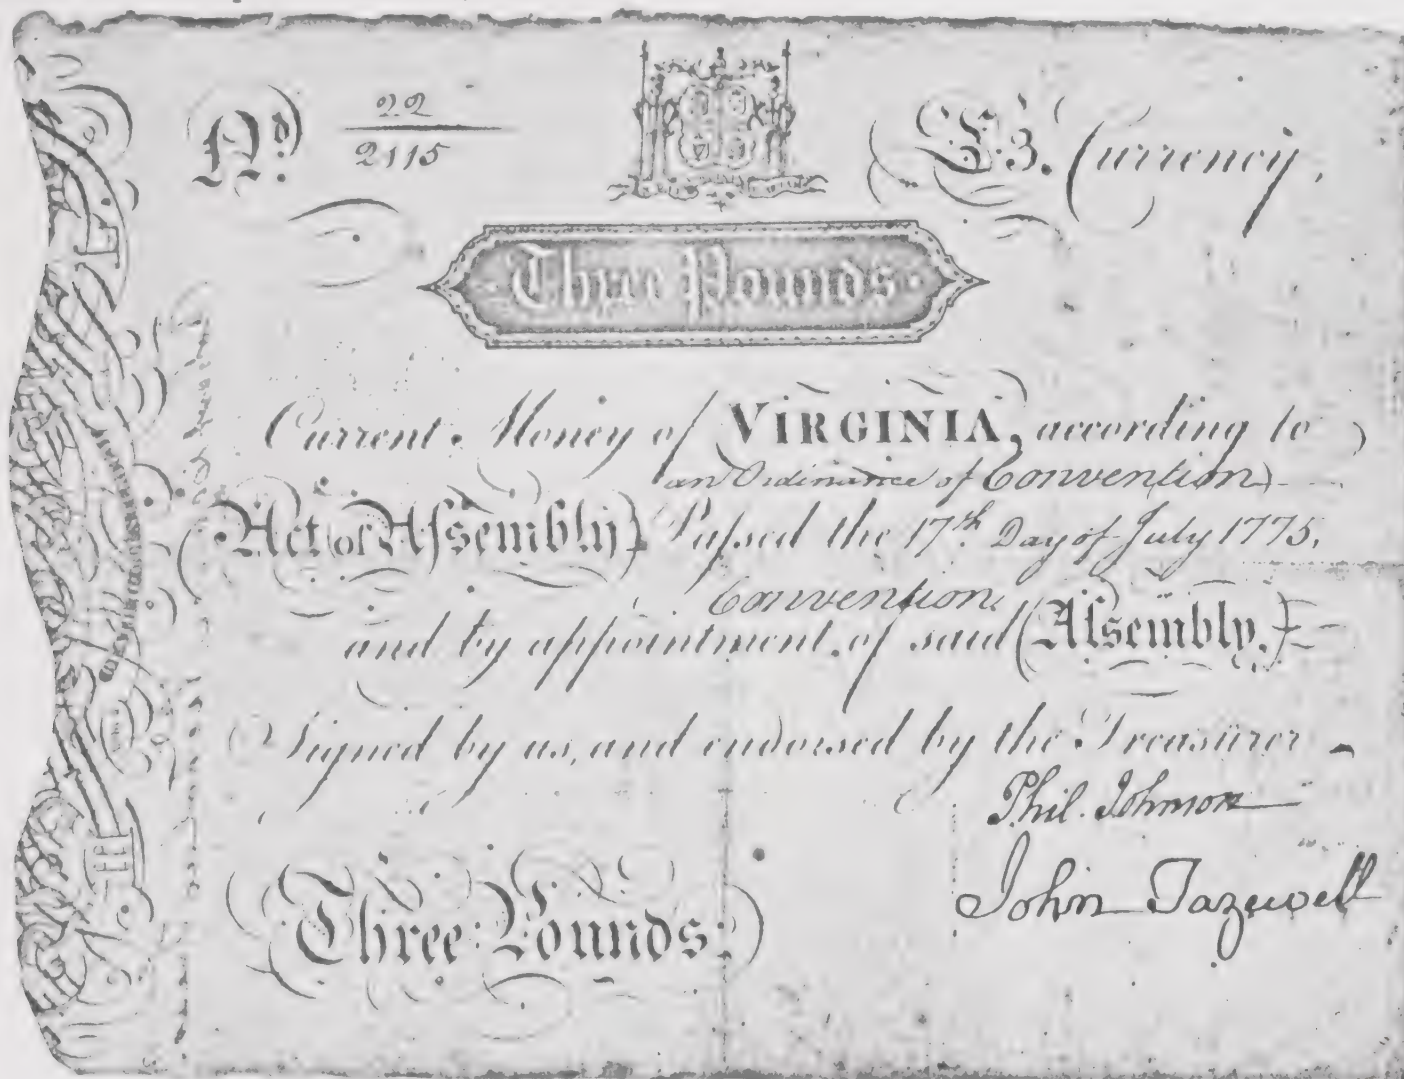 No. 22
2115
£3. Currency,
Three Pounds
Current Money of VIRGINIA, according to
an Ordinance of Convention
Act of Assembly Passed the 17th. Day of July 1775.
Convention
and by appointment, of said (Assembly.)
Signed by us, and endorsed by the Treasurer
Phil. Johnson
John Tazewell
Three Pounds.